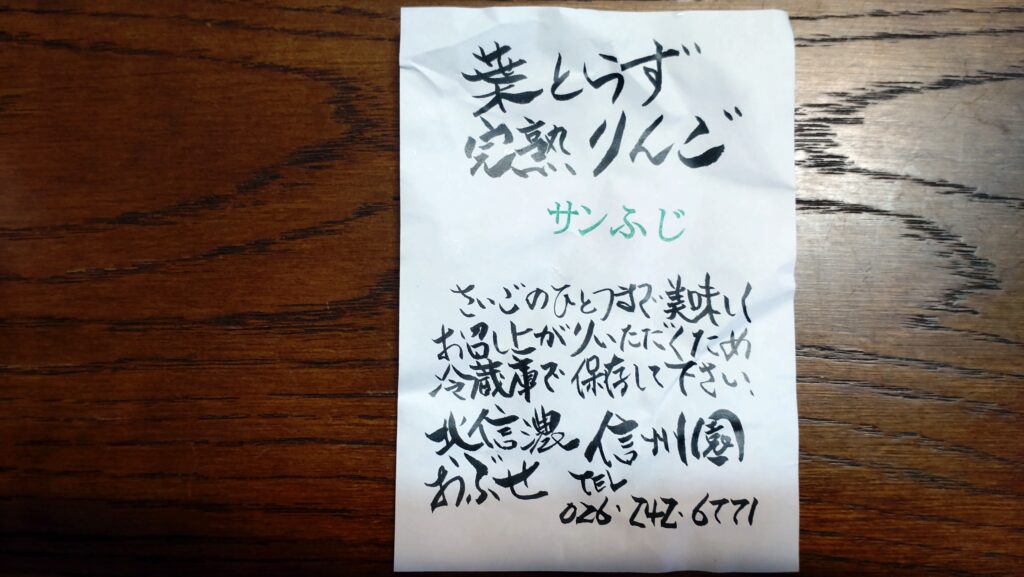 葉とらず
完熟りんご
サンふじ
さいごのひとつまで美味しく
お召し上がりいただくため
冷蔵庫で保存して下さい
北信濃 信州園
おぶせ TEL
026・242・6771